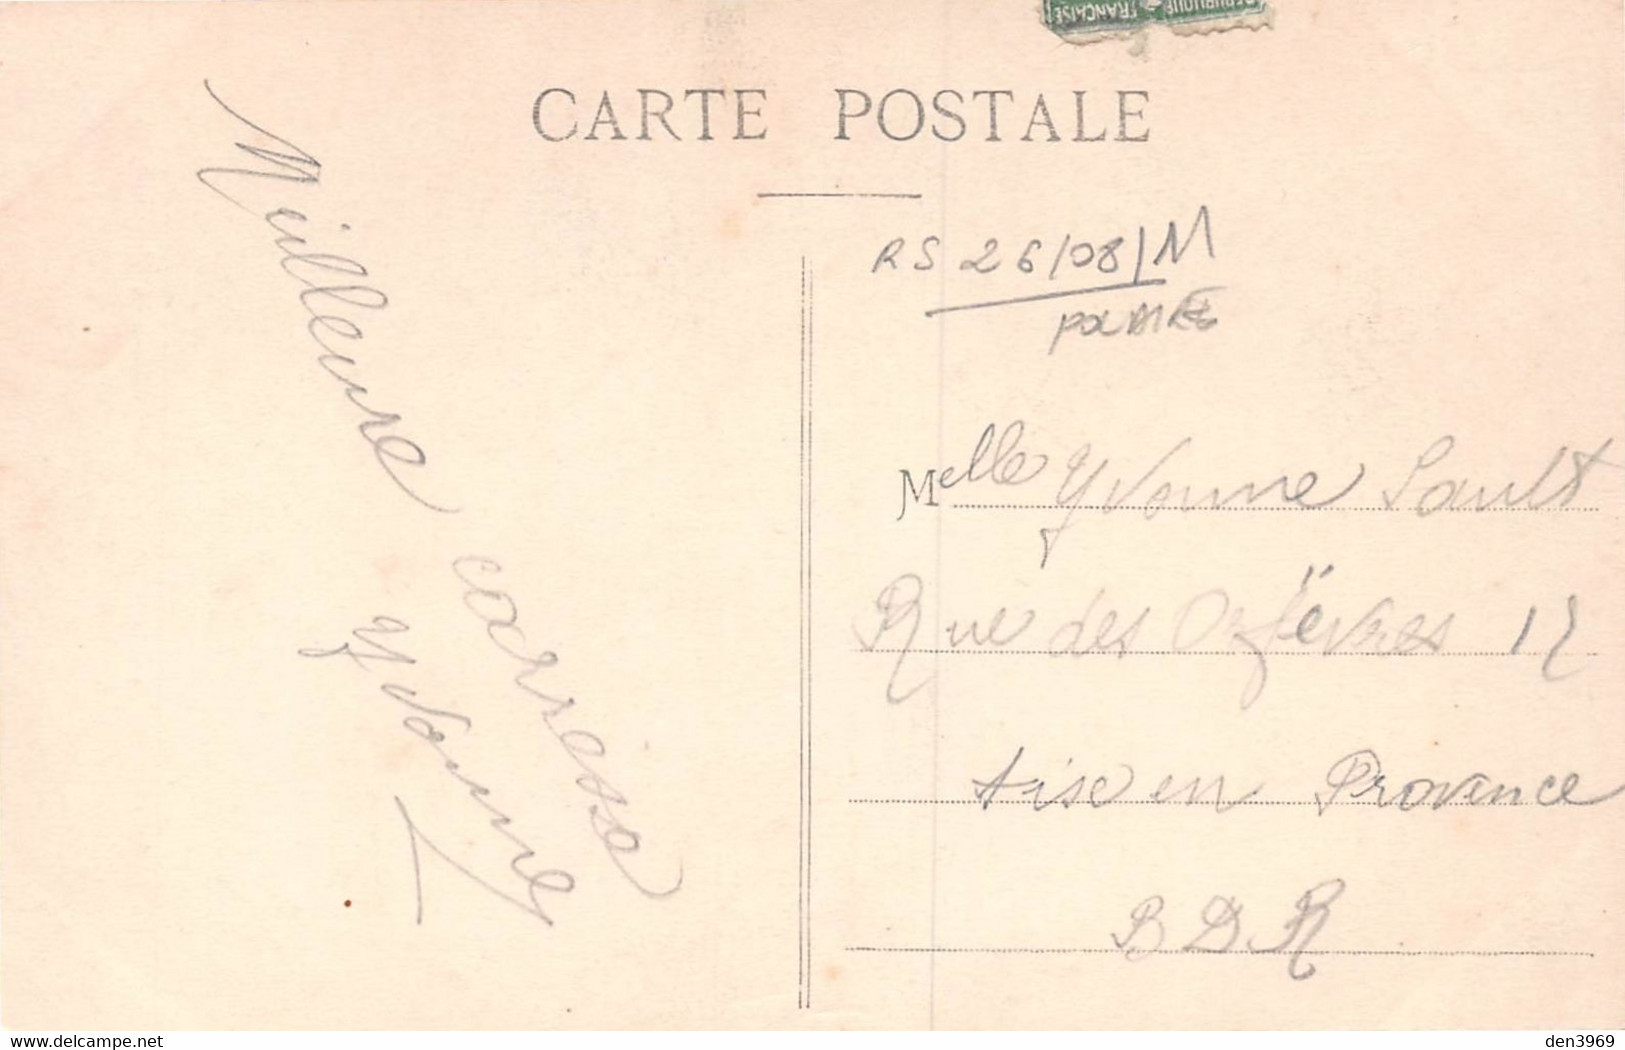 RÉPUBLIQUE
FRANÇAISE
CARTE POSTALE
RS 26/08/11
Meilleure
caresse
Yvonne
Melle Yvonne Sault
Rue des Orfèvres 12
Aise en Provence
B D R
delcampe.net
den3969